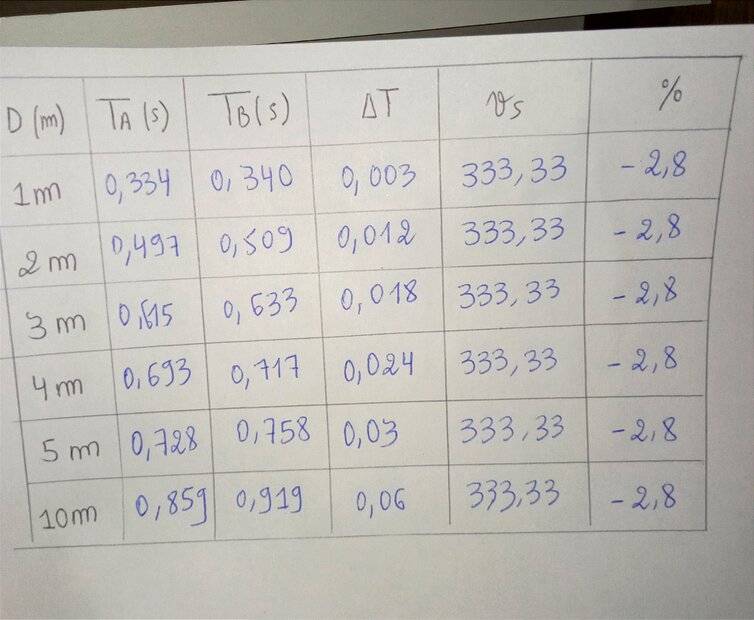 D (m) TA (s) TB (s) ΔT vs %
1m 0,334 0,340 0,003 333,33 -2,8
2m 0,497 0,509 0,012 333,33 -2,8
3m 0,615 0,633 0,018 333,33 -2,8
4m 0,693 0,717 0,024 333,33 -2,8
5m 0,728 0,758 0,03 333,33 -2,8
10m 0,859 0,919 0,06 333,33 -2,8